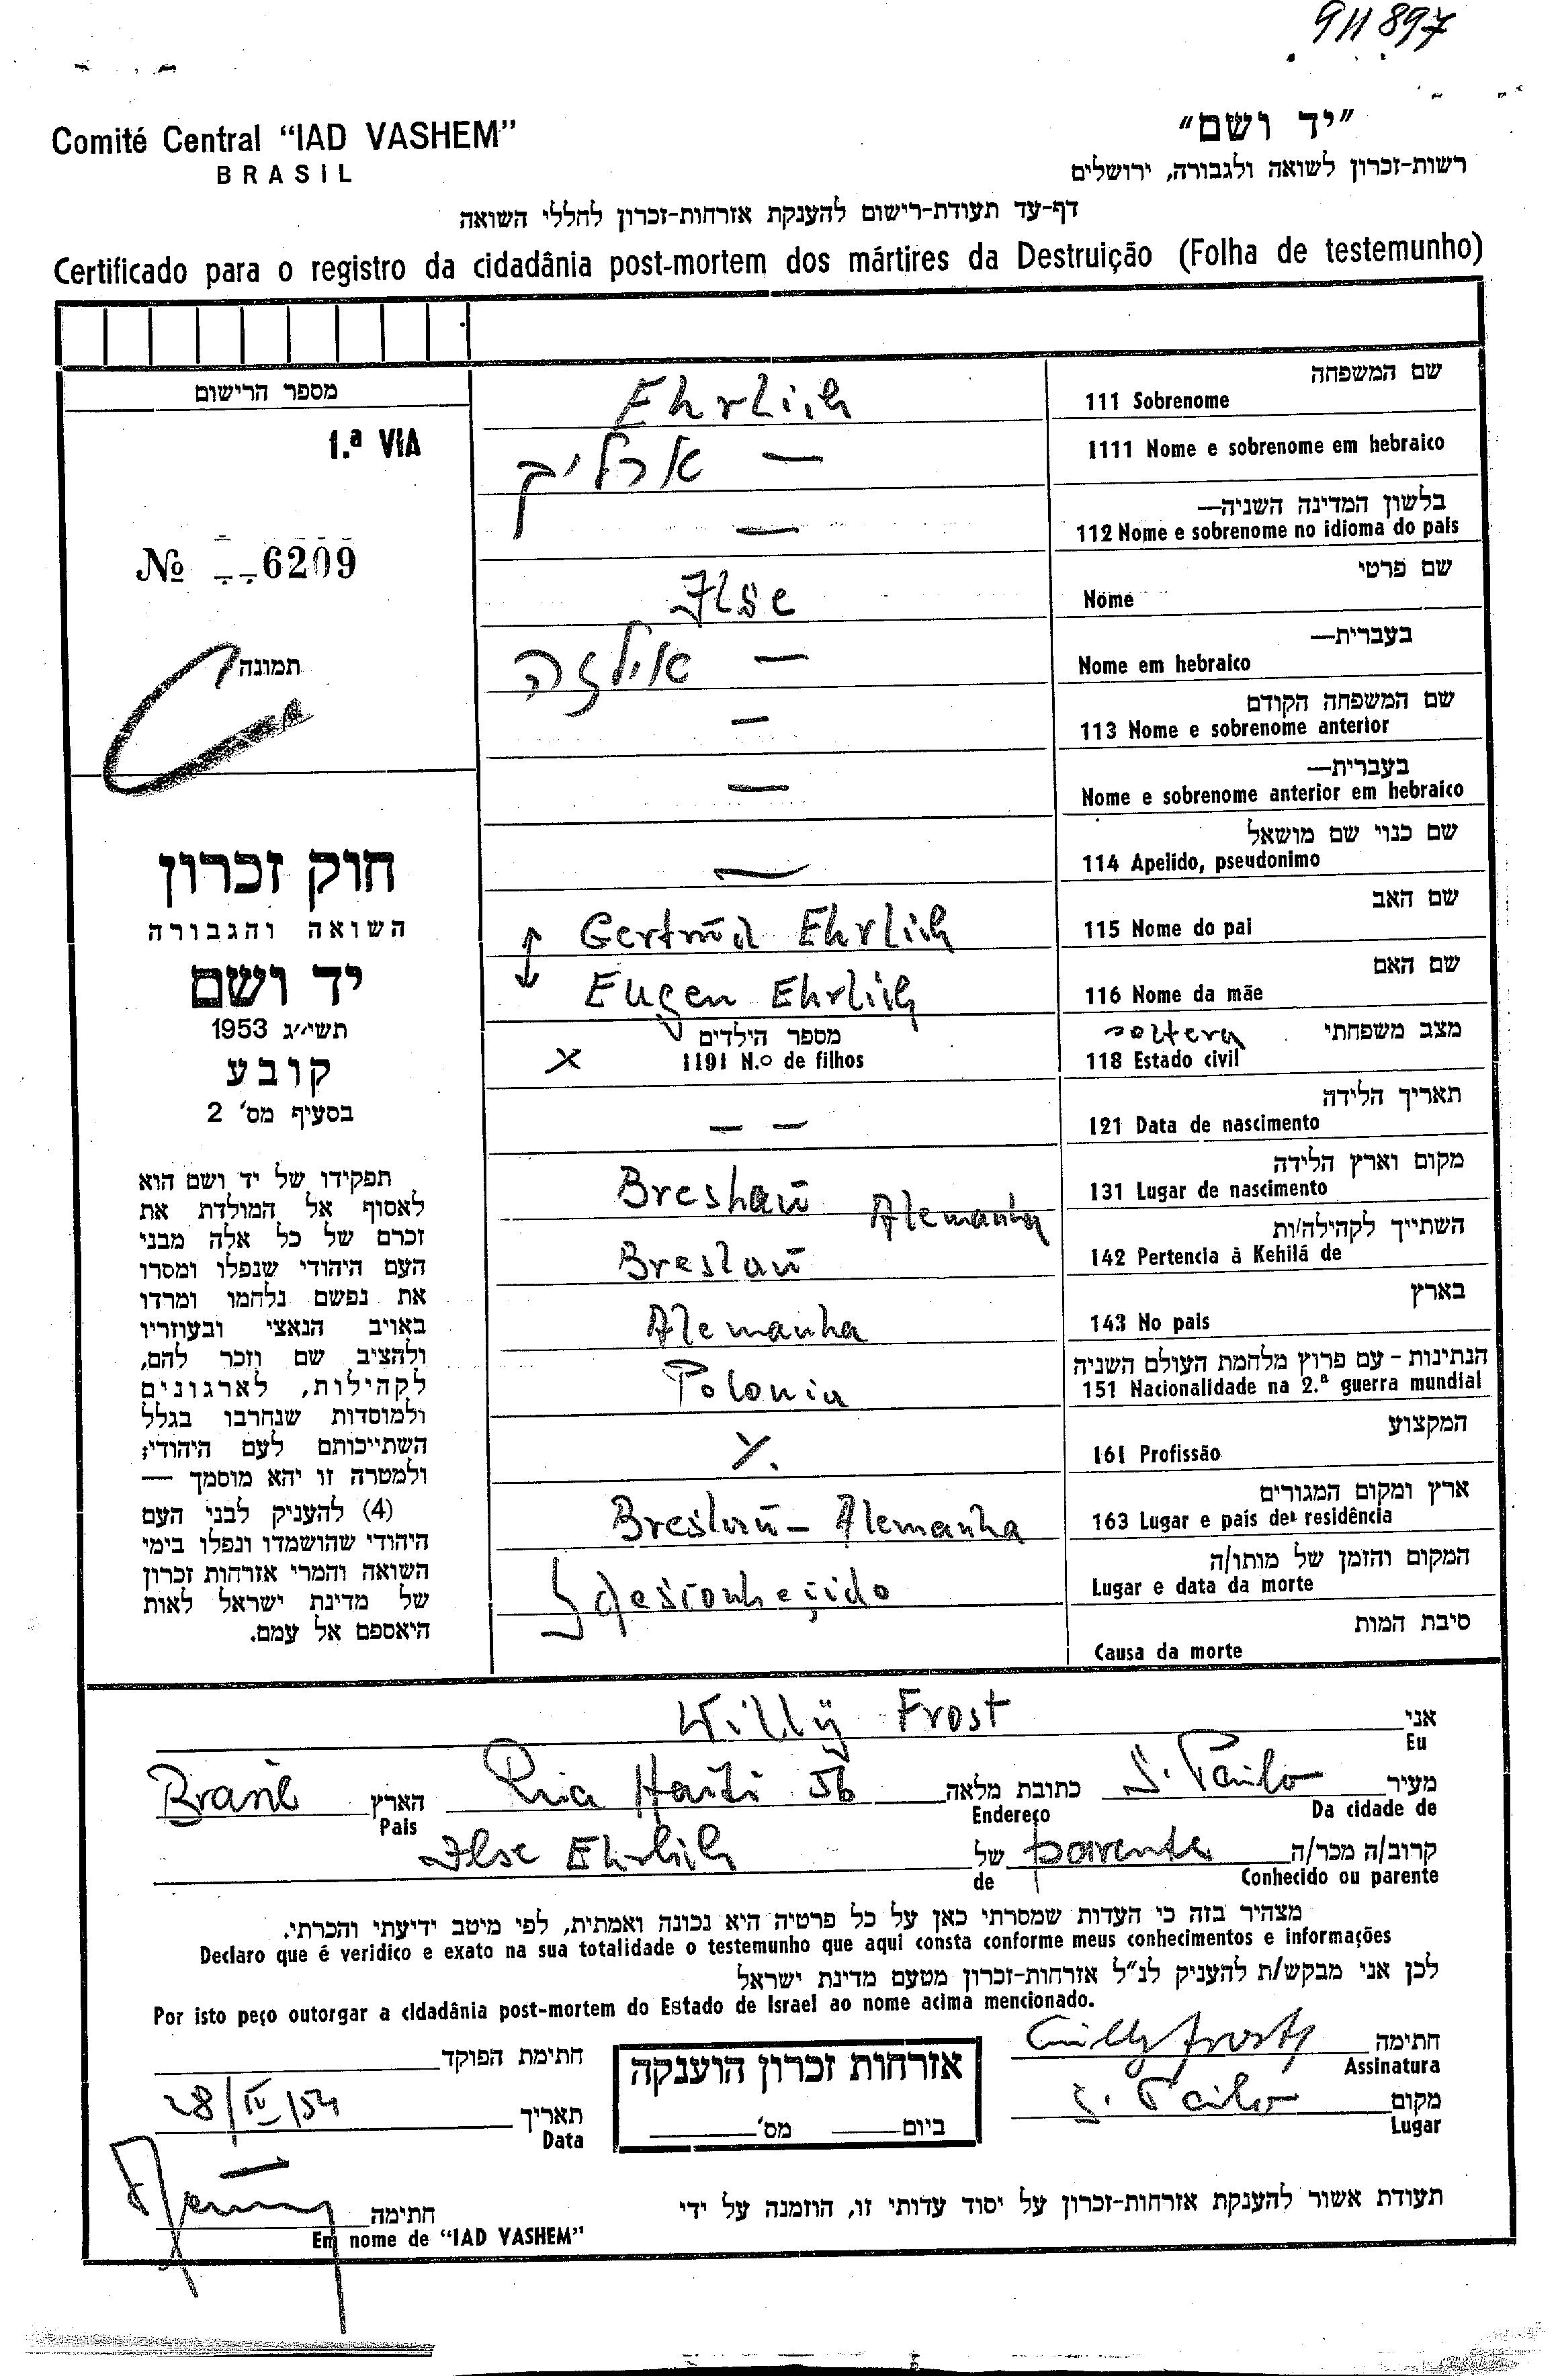 911897
Comité Central "IAD VASHEM"
BRASIL
"יד ושם"
רשות-זכרון לשואה ולגבורה, ירושלים
דף-עד תעודת-רישום להענקת אזרחות-זכרון לחללי השואה
Certificado para o registro da cidadânia post-mortem dos mártires da Destruição (Folha de testemunho)
מספר הרישום
1.ª VIA
№ 6209
תמונה
חוק זכרון
השואה והגבורה
יד ושם
תשי״ג 1953
קובע
בסעיף מס' 2
תפקידו של יד ושם הוא
לאסוף אל המולדת את
זכרם של כל אלה מבני
העם היהודי שנפלו ומסרו
את נפשם נלחמו ומרדו
באויב הנאצי ובעוזריו
ולהציב שם וזכר להם,
לקהילות, לארגונים
ולמוסדות שנחרבו בגלל
השתייכותם לעם היהודי;
ולמטרה זו יהא מוסמך —
(4) להעניק לבני העם
היהודי שהושמדו ונפלו בימי
השואה והמרי אזרחות זכרון
של מדינת ישראל לאות
היאספם אל עמם.
שם המשפחה
111 Sobrenome Ehrlich
1111 Nome e sobrenome em hebraico — ארליך
בלשון המדינה השניה—
112 Nome e sobrenome no idioma do pais —
שם פרטי
Nome Ilse
בעברית—
Nome em hebraico — אילזה
שם המשפחה הקודם
113 Nome e sobrenome anterior —
בעברית—
Nome e sobrenome anterior em hebraico —
שם כנוי שם מושאל
114 Apelido, pseudonimo —
שם האב
115 Nome do pai Gertrud Ehrlich
שם האם
116 Nome da mãe Eugen Ehrlich
מצב משפחתי
118 Estado civil soltera
מספר הילדים
1191 N.o de filhos X
תאריך הלידה
121 Data de nascimento — —
מקום וארץ הלידה
131 Lugar de nascimento Breslau Alemanha
השתייך לקהילה/ות
142 Pertencia à Kehilá de Breslau
בארץ
143 No pais Alemanha
הנתינות - עם פרוץ מלחמת העולם השניה
151 Nacionalidade na 2.ª guerra mundial Polonia
המקצוע
161 Profissão
ארץ ומקום המגורים
163 Lugar e país de residência Breslau - Alemanha
המקום והזמן של מותו/ה
Lugar e data da morte desconheçido
סיבת המות
Causa da morte
אני
Eu Willy Frost
מעיר
Da cidade de S. Paulo
כתובת מלאה
Endereço Rua Haiti 56
הארץ
Pais Brasil
קרוב/ה מכר/ה
Conhecido ou parente parente
של
de Ilse Ehrlich
מצהיר בזה כי העדות שמסרתי כאן על כל פרטיה היא נכונה ואמתית, לפי מיטב ידיעתי והכרתי.
Declaro que é veridico e exato na sua totalidade o testemunho que aqui consta conforme meus conhecimentos e informações
לכן אני מבקש/ת להעניק לנ"ל אזרחות-זכרון מטעם מדינת ישראל
Por isto peço outorgar a cidadânia post-mortem do Estado de Israel ao nome acima mencionado.
חתימה
Assinatura Willy Frost
מקום
Lugar S. Paulo
אזרחות זכרון הוענקה
ביום מס'
חתימת הפוקד
תאריך
Data 28/IV/54
תעודת אשור להענקת אזרחות-זכרון על יסוד עדותי זו, הוזמנה על ידי
חתימה
Em nome de "IAD VASHEM"